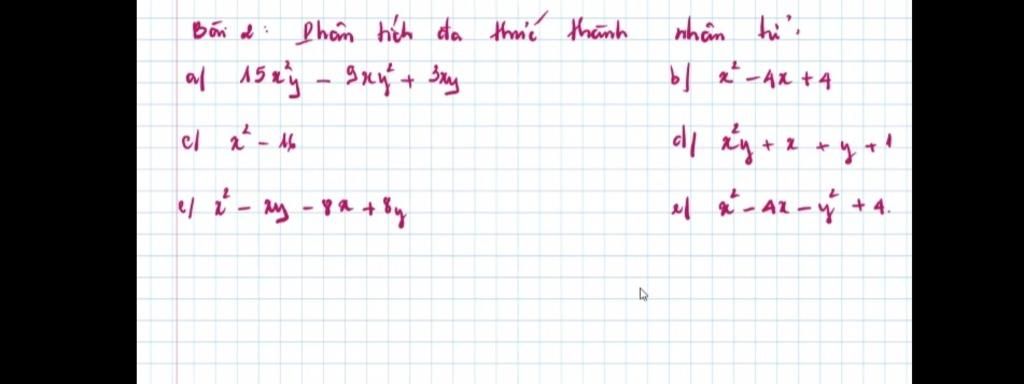 Bài 2: Phân tích đa thức thành nhân tử.
a/ 15x²y - 9xy² + 3xy b/ x² - 4x + 4
c/ x² - 16 d/ x²y + x + y + 1
e/ x² - xy - 8x + 8y e/ x² - 4x - y² + 4.